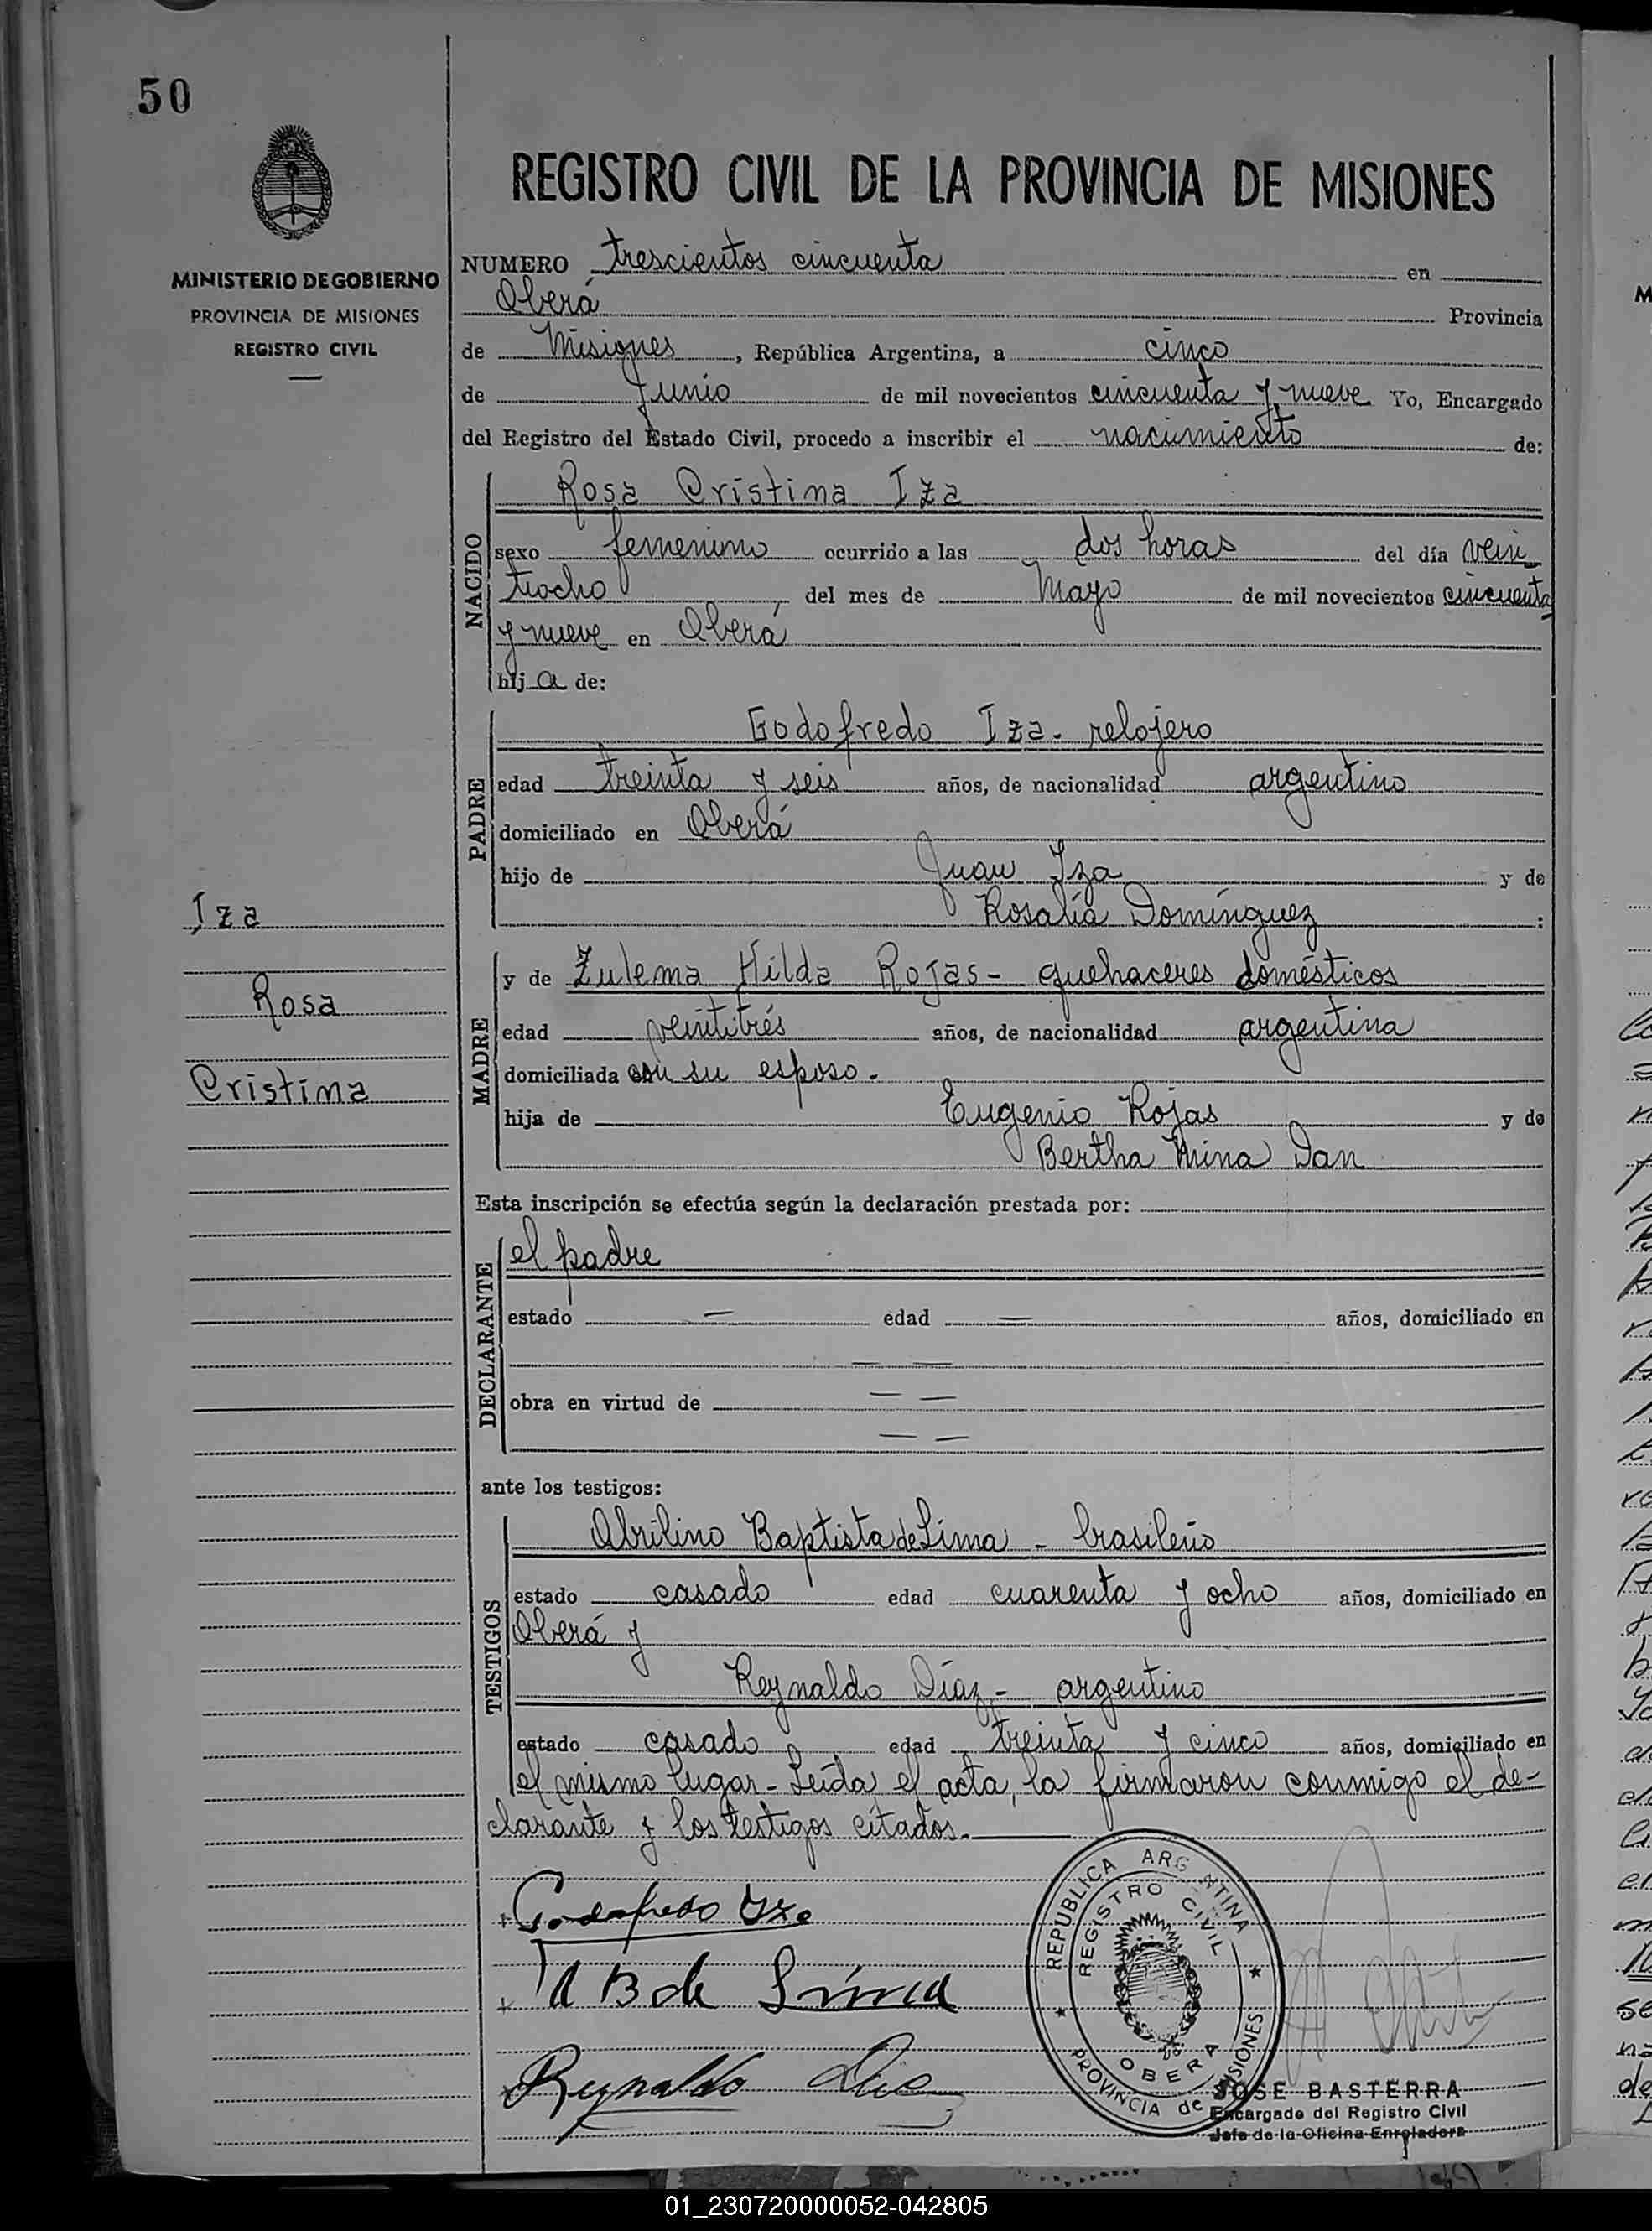 50
REGISTRO CIVIL DE LA PROVINCIA DE MISIONES
MINISTERIO DE GOBIERNO
PROVINCIA DE MISIONES
REGISTRO CIVIL
NUMERO trescientos cincuenta en
Oberá Provincia
de Misiones, República Argentina, a cinco
de Junio de mil novecientos cincuenta y nueve Yo, Encargado
del Registro del Estado Civil, procedo a inscribir el nacimiento de:
NACIDO
Rosa Cristina Iza
sexo femenino ocurrido a las dos horas del día vein
tiocho del mes de Mayo de mil novecientos cincuenta
y nueve en Oberá
hija de:
PADRE
Godofredo Iza - relojero
edad treinta y seis años, de nacionalidad argentino
domiciliado en Oberá
hijo de Juan Iza y de
Rosalía Domínguez :
Iza
Rosa
Cristina
MADRE
y de Zulema Hilda Rojas - quehaceres domésticos
edad veintitrés años, de nacionalidad argentina
domiciliada con su esposo.
hija de Eugenio Rojas y de
Bertha Mina Dan
Esta inscripción se efectúa según la declaración prestada por:
DECLARANTE
el padre
estado — edad — años, domiciliado en
— —
obra en virtud de — —
— —
ante los testigos:
TESTIGOS
Abrilino Baptista de Lima - brasileño
estado casado edad cuarenta y ocho años, domiciliado en
Oberá y
Reynaldo Díaz - argentino
estado casado edad treinta y cinco años, domiciliado en
el mismo lugar - Leída el acta, la firmaron conmigo el de-
clarante y los testigos citados.
Godofredo Iza
A B de Lima
Reynaldo Diaz
REPUBLICA ARGENTINA
REGISTRO CIVIL
OBERA
PROVINCIA de MISIONES
JOSE BASTERRA
Encargado del Registro Civil
Jefe de la Oficina Enroladora
01_230720000052-042805